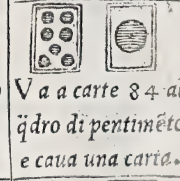 V a a carte 84 al
q̃dro di pentimẽto
e caua una carta.